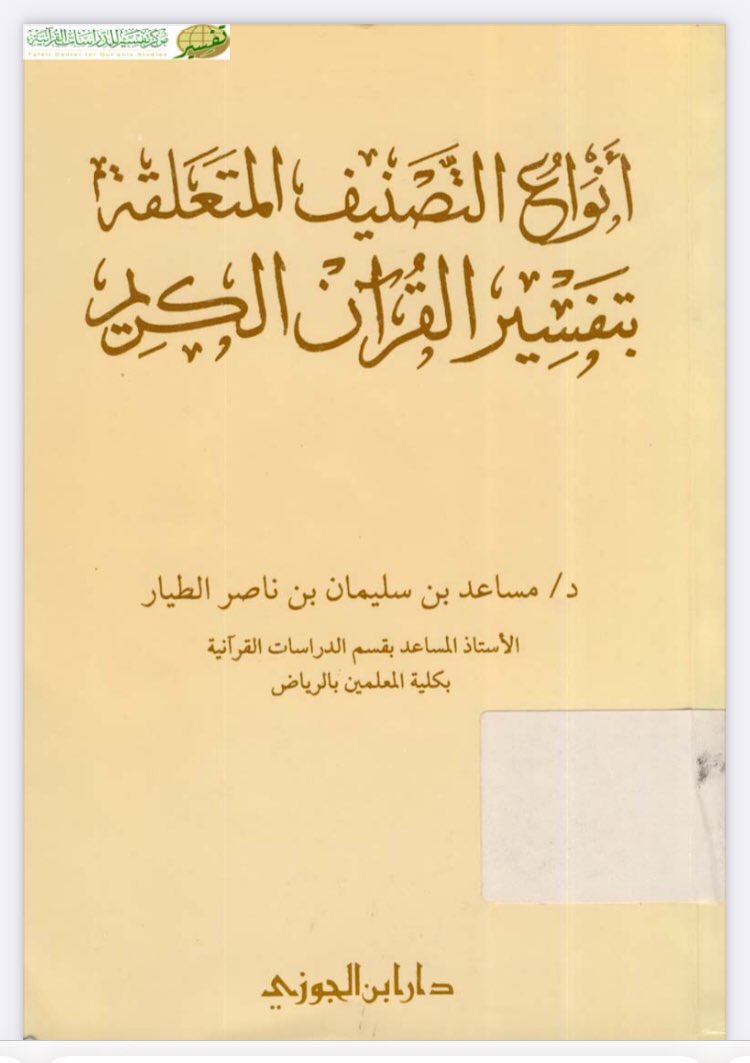 مركز تفسير للدراسات القرآنية
تفسير
Tafsir Center for Qur'anic Studies
أَنْوَاعُ التَّصْنِيف المتَعَلقة
بتَفسِير القُرآن الكَرِيم
د/ مساعد بن سليمان بن ناصر الطيار
الأستاذ المساعد بقسم الدراسات القرآنية
بكلية المعلمين بالرياض
دار ابن الجوزي